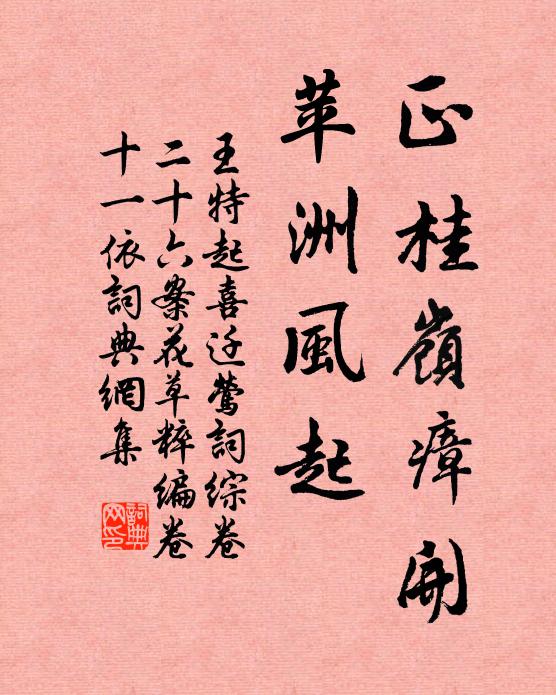 正桂嶺瘴開
蘋洲風起
王特起喜迁鶯詞綜卷
二十六案花草粹编卷
十一依詞典網集
詞典
网印